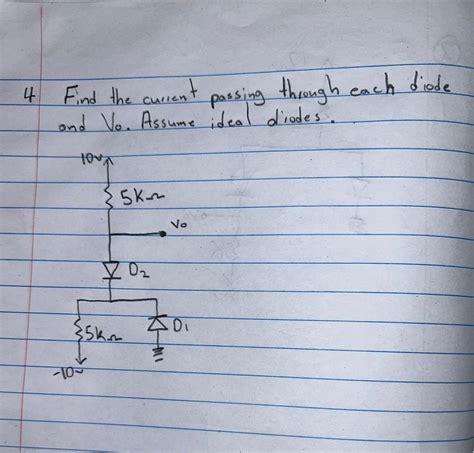 4 Find the current passing through each diode
and Vo. Assume ideal diodes.
10v
5KΩ
Vo
D2
5kΩ D1
-10v